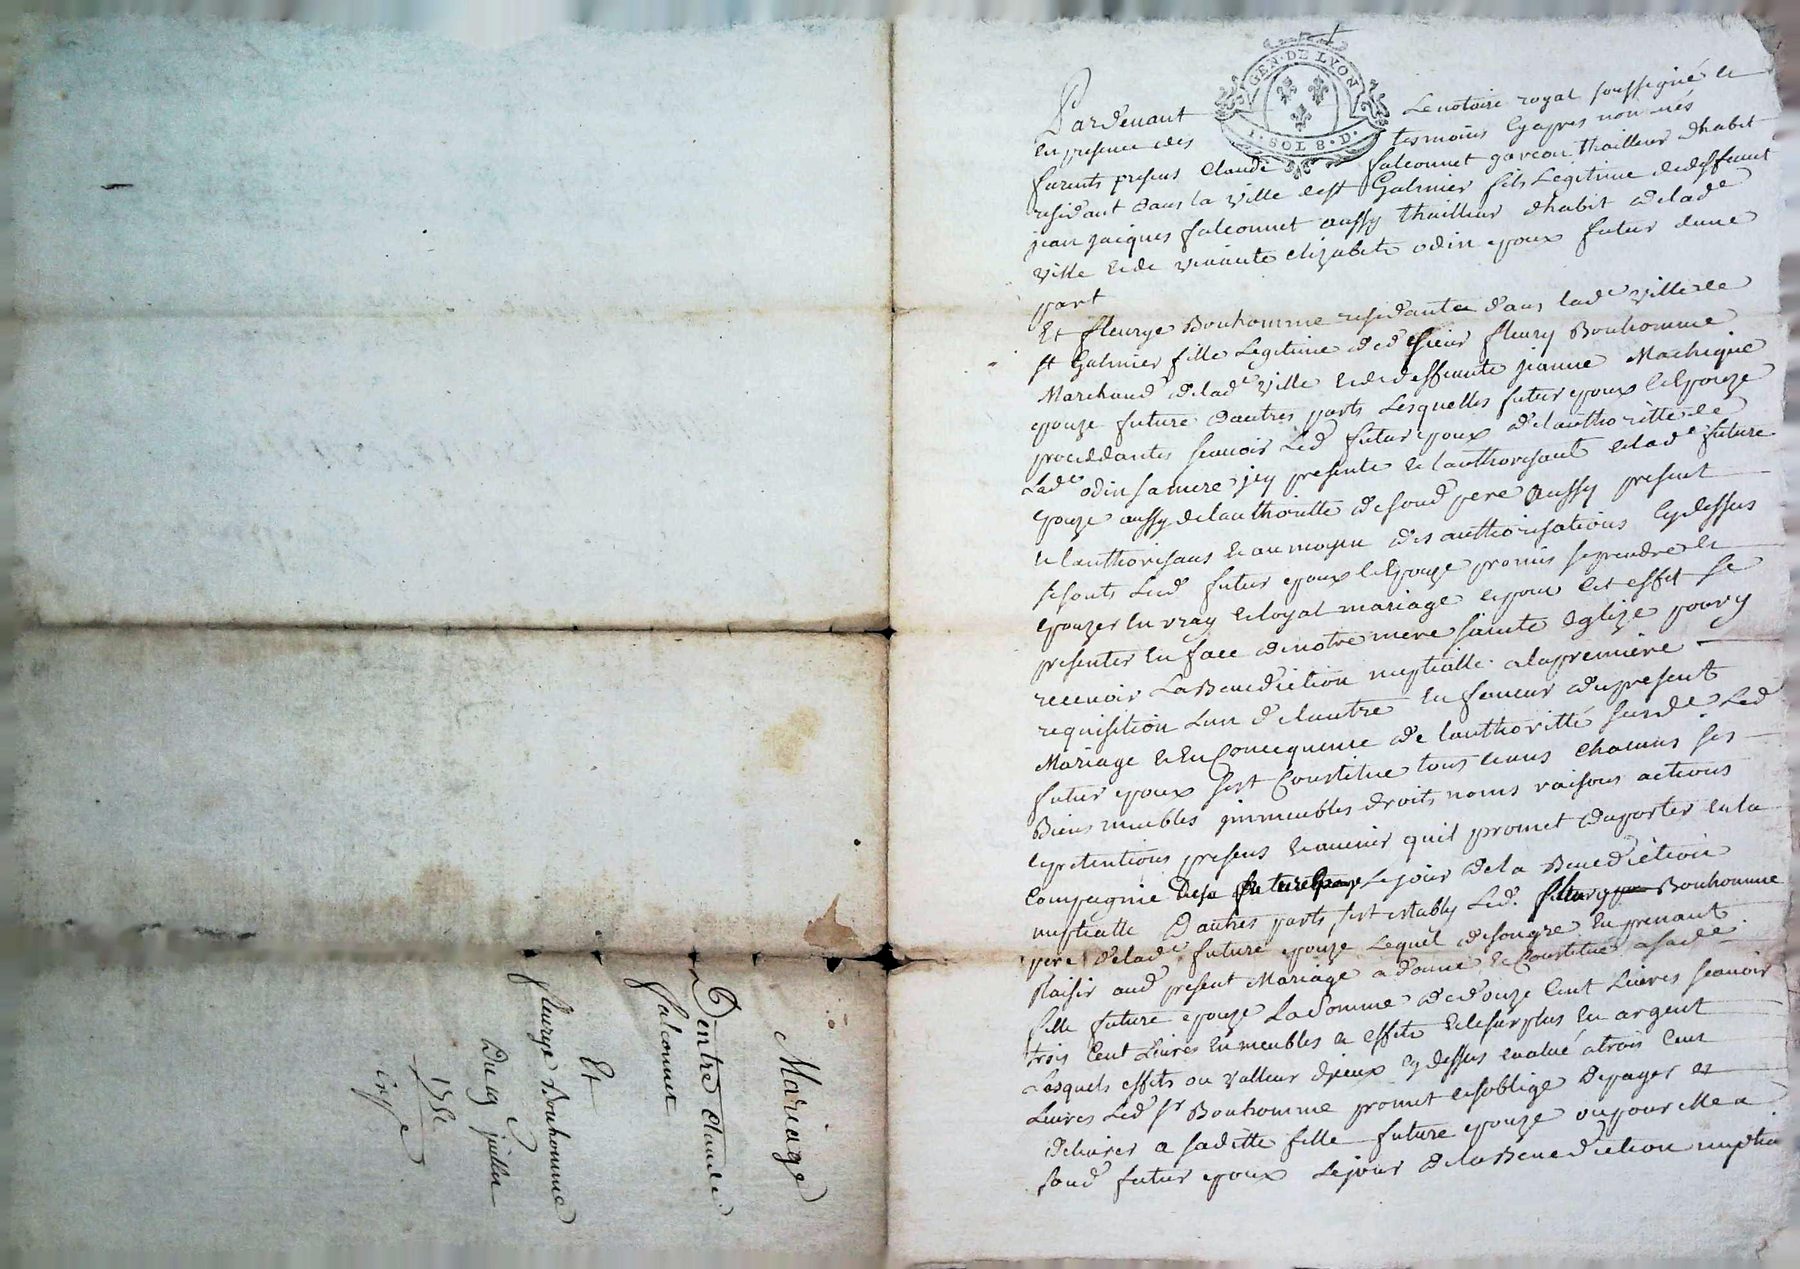 GEN. DE LYON
1. SOL 8. D.
Pardevant Le notoire royal soussigné et
En presence des tesmoins Cyapres nommés
furents presens Claude falconnet garcon thailleur dhabit
residant dans la ville de st Galmier fils Legitime de deffeunt
jean jacques falconnet aussy thailleur dhabit de lade
ville et de vivante elizabete odin epoux futur dune
part
Et fleurye Bonhomme residante dans lade ville de
st Galmier fille Legitime de sieur fleury Bonhomme
Marchand de lade ville et de deffeunte jeanne Machique
epouze future dautres parts Lesquelles futur epoux et Epouze
proceddantes scauoir Led futur epoux de lauthoritte de
Lade odin sa mere jcy presente et lauthorisant et lade future
Epouze aussy de lauthoritte de sond pere aussy present
et lauthorisans et au moyen des authorisations Cydessus
se sonts Led futur epoux et Epouze promis se prendre et
Epouzer En vray et loyal mariage et pour cet effet se
presenter En face de notre mere sainte Eglize pour y
receuoir La Benediction nuptialle a la premiere
requisition Lun de lautre En faueur du present
Mariage et En Consequence de lauthoritté susde Led
futur epoux sest Constitue tous et uns chacuns ses
Biens meubles jmmeubles droits noms raisons actions
et pretentions presens et auenir quil promet daporter en la
Compagnie de sa future Epouze Le jour de la Benediction
nuptialle Dautres parts sest establys Led. fleury Bonhomme
pere de lade future epouze Lequel de son gre En prenant
plaisir aud present Mariage a donné et Constitué a sade
fille future epouze La Somme de douze Cent Liures scauoir
trois Cent Liures En meubles et effets et le surplus En argent
Lesquels effets ou valleur djceux cy dessus eualué a trois Cent
Liures Led Sr Bonhomme promet et soblige de payer et
deliurer a saditte fille future epouze ou pour elle a
sond futur epoux Le jour de la Benediction nuptia
Mariage
Dentre Claude
falconnet
Et
fleurye Bonhomme
Du 19 juillet